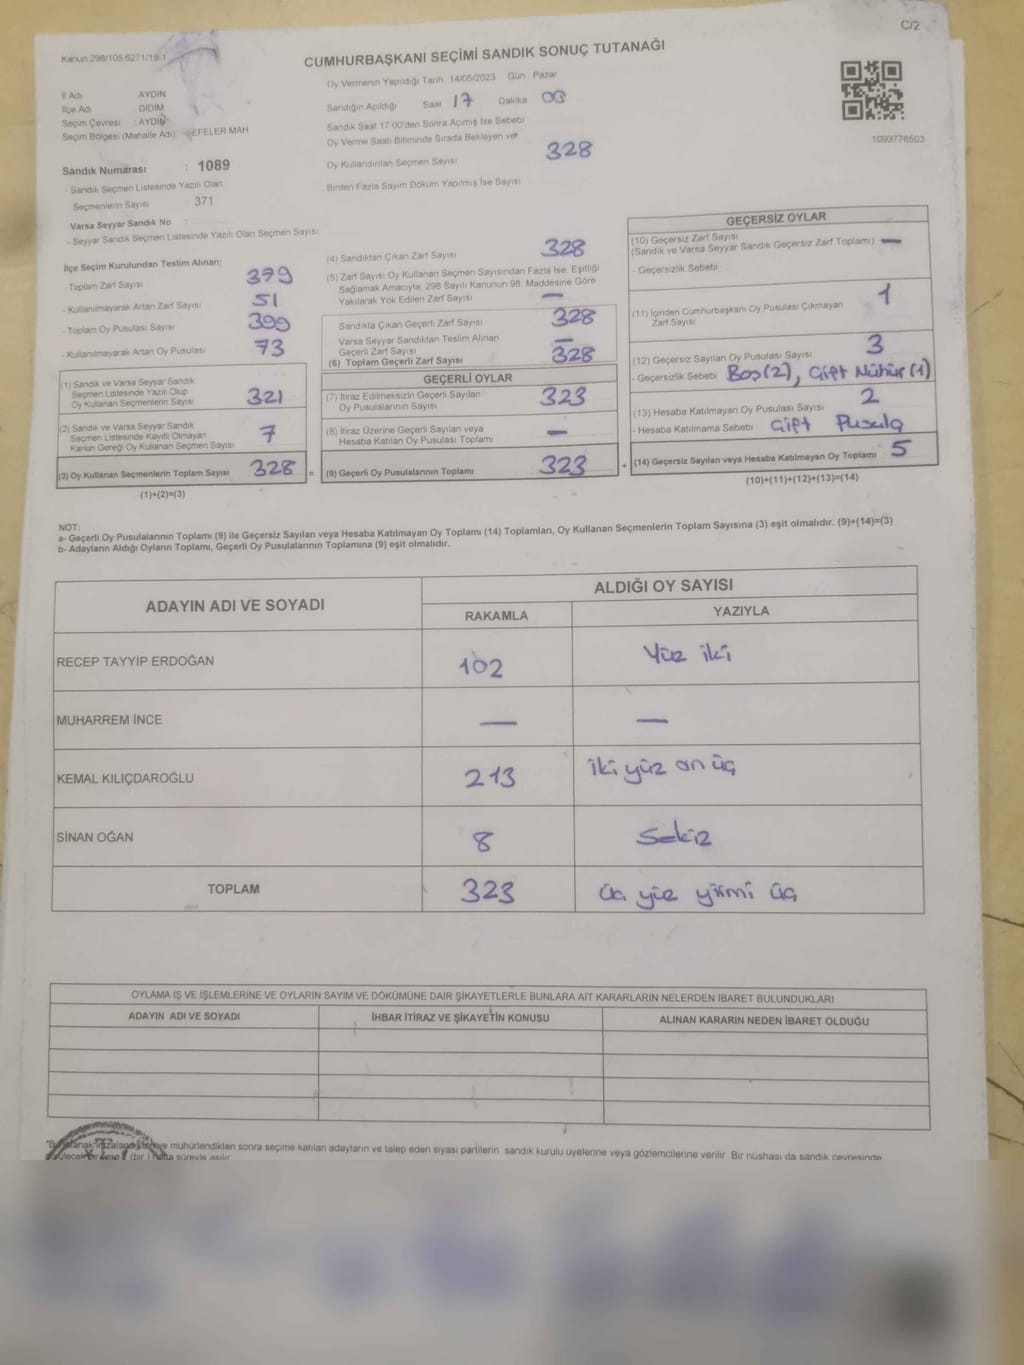 C/2
Kanun:298/105-6271/18-1
CUMHURBAŞKANI SEÇİMİ SANDIK SONUÇ TUTANAĞI
Oy Vermenin Yapıldığı Tarih 14/05/2023 Gün : Pazar
Sandığın Açıldığı Saat 17 Dakika 00
Sandık Saat 17.00'den Sonra Açımış İse Sebebi
Oy Verme Saati Bitiminde Sırada Bekleyen ve
Oy Kullandırılan Seçmen Sayısı 328
Birden Fazla Sayım Döküm Yapılmış İse Sayısı
1093776503
İl Adı AYDIN
İlçe Adı DİDİM
Seçim Çevresi : AYDIN
Seçim Bölgesi (Mahalle Adı) EFELER MAH
Sandık Numarası : 1089
- Sandık Seçmen Listesinde Yazılı Olan
Seçmenlerin Sayısı : 371
Varsa Seyyar Sandık No :
- Seyyar Sandık Seçmen Listesinde Yazılı Olan Seçmen Sayısı:
İlçe Seçim Kurulundan Teslim Alınan;
- Toplam Zarf Sayısı 379
- Kullanılmayarak Artan Zarf Sayısı 51
- Toplam Oy Pusulası Sayısı 399
- Kullanılmayarak Artan Oy Pusulası 73
(1) Sandık ve Varsa Seyyar Sandık
Seçmen Listesinde Yazılı Olup
Oy Kullanan Seçmenlerin Sayısı 321
(2) Sandık ve Varsa Seyyar Sandık
Seçmen Listesinde Kayıtlı Olmayan
Kanun Gereği Oy Kullanan Seçmen Sayısı 7
(3) Oy Kullanan Seçmenlerin Toplam Sayısı 328 =
(1)+(2)=(3)
(4) Sandıktan Çıkan Zarf Sayısı 328
(5) Zarf Sayısı Oy Kullanan Seçmen Sayısından Fazla İse, Eşitliği
Sağlamak Amacıyla; 298 Sayılı Kanunun 98. Maddesine Göre
Yakılarak Yok Edilen Zarf Sayısı —
Sandıkta Çıkan Geçerli Zarf Sayısı 328
Varsa Seyyar Sandıktan Teslim Alınan
Geçerli Zarf Sayısı —
(6) Toplam Geçerli Zarf Sayısı 328
GEÇERLİ OYLAR
(7) İtiraz Edilmeksizin Geçerli Sayılan
Oy Pusulalarının Sayısı 323
(8) İtiraz Üzerine Geçerli Sayılan veya
Hesaba Katılan Oy Pusulası Toplamı —
(9) Geçerli Oy Pusulalarının Toplamı 323 +
GEÇERSİZ OYLAR
(10) Geçersiz Zarf Sayısı
(Sandık ve Varsa Seyyar Sandık Geçersiz Zarf Toplamı) —
- Geçersizlik Sebebi :
(11) İçinden Cumhurbaşkanı Oy Pusulası Çıkmayan
Zarf Sayısı 1
(12) Geçersiz Sayılan Oy Pusulası Sayısı 3
- Geçersizlik Sebebi Boş(2), Çift Mühür (1)
(13) Hesaba Katılmayan Oy Pusulası Sayısı 2
- Hesaba Katılmama Sebebi Çift Pusula
(14) Geçersiz Sayılan veya Hesaba Katılmayan Oy Toplamı 5
(10)+(11)+(12)+(13)=(14)
NOT:
a- Geçerli Oy Pusulalarının Toplamı (9) ile Geçersiz Sayılan veya Hesaba Katılmayan Oy Toplamı (14) Toplamları, Oy Kullanan Seçmenlerin Toplam Sayısına (3) eşit olmalıdır. (9)+(14)=(3)
b- Adayların Aldığı Oyların Toplamı, Geçerli Oy Pusulalarının Toplamına (9) eşit olmalıdır.
ADAYIN ADI VE SOYADI ALDIĞI OY SAYISI
RAKAMLA YAZIYLA
RECEP TAYYİP ERDOĞAN 102 Yüz iki
MUHARREM İNCE — —
KEMAL KILIÇDAROĞLU 213 iki yüz on üç
SİNAN OĞAN 8 Sekiz
TOPLAM 323 üç yüz yirmi üç
OYLAMA İŞ VE İŞLEMLERİNE VE OYLARIN SAYIM VE DÖKÜMÜNE DAİR ŞİKAYETLERLE BUNLARA AİT KARARLARIN NELERDEN İBARET BULUNDUKLARI
ADAYIN ADI VE SOYADI İHBAR İTİRAZ VE ŞİKAYETİN KONUSU ALINAN KARARIN NEDEN İBARET OLDUĞU
mühürlendikten sonra seçime katılan adayların ve talep eden siyasi partilerin sandık kurulu üyelerine veya gözlemcilerine verilir. Bir nüshası da sandık çevresinde